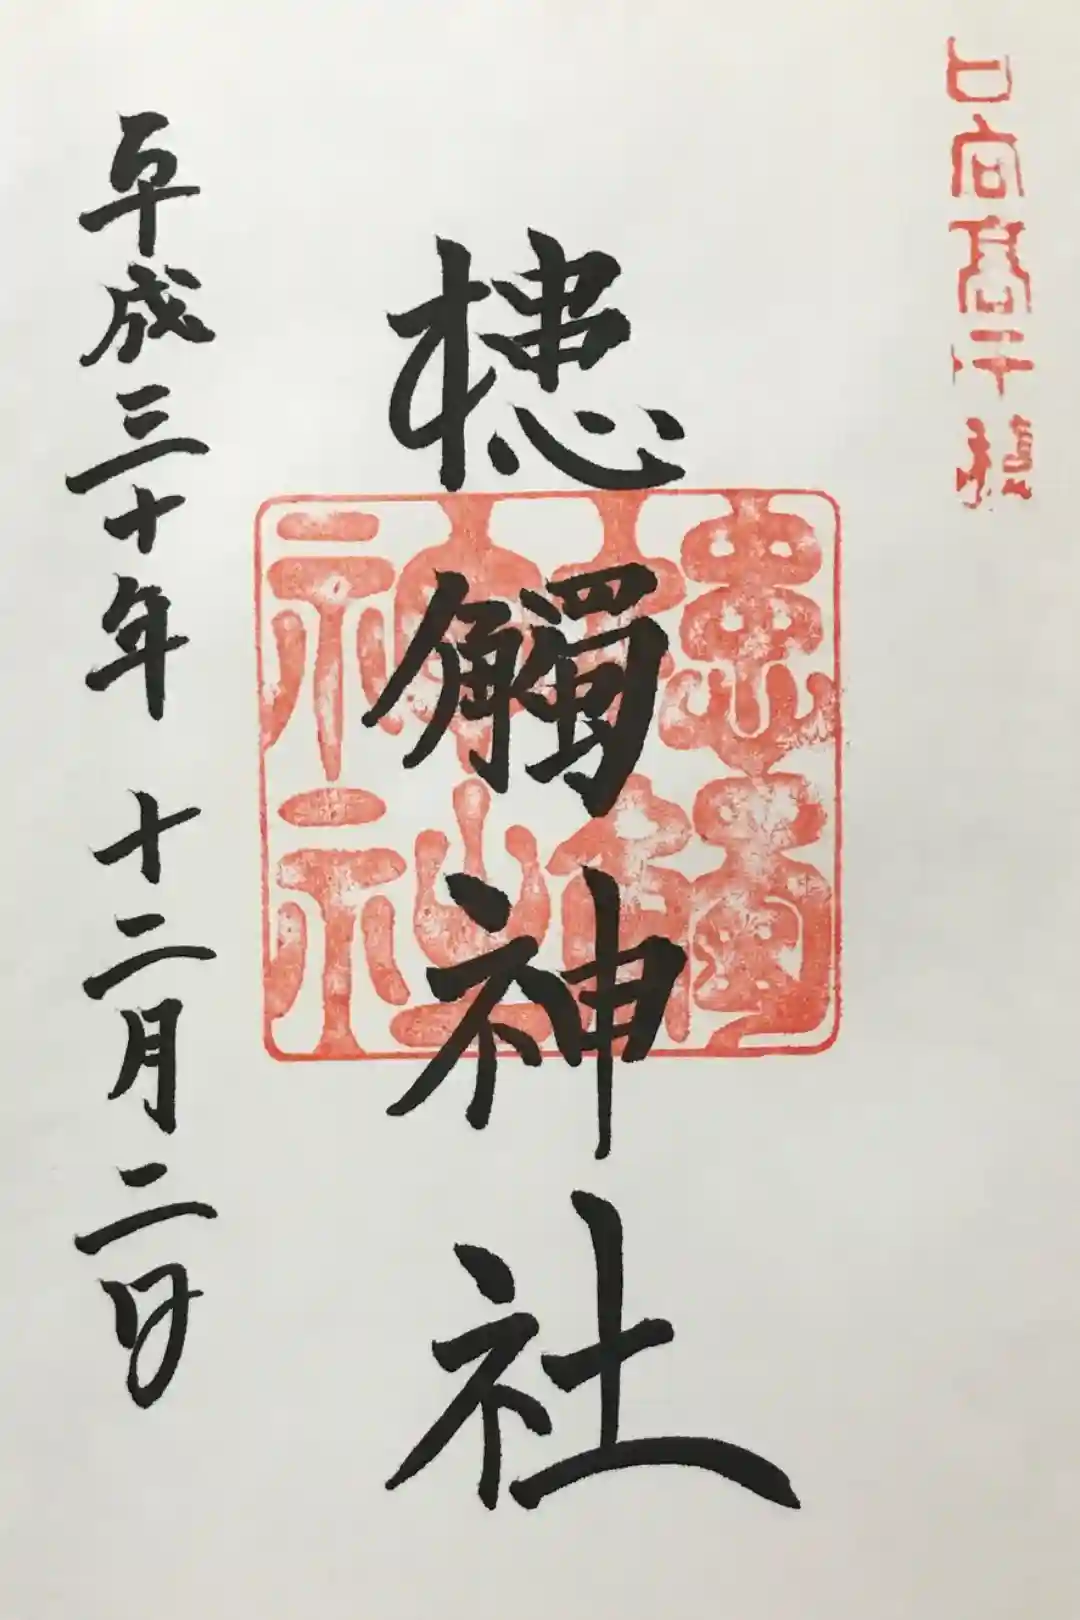 日向高千穂
槵觸神社
槵觸神社
平成三十年 十二月二日